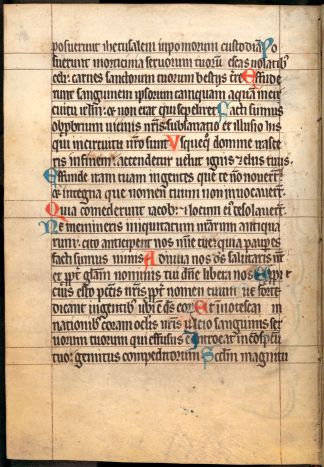 posuerunt iherusalem in pomorum custodiam Po
suerunt morticina seruorum tuorum escas uolatilib
celi: carnes sanctorum tuorum bestijs tre Effude
runt sanguinem ipsorum tanquam aquam in cir
cuitu irlm: & non erat qui sepeliret Facti sumus
obprbrium uicinis nris: subsannatio et illusio hijs
qui in circuitu nro sunt Vsquequo domine irasce
ris in finem: accendetur uelut ignis zelus tuus
Effunde iram tuam in gentes que te no nouerut:
& in regna que nomen tuum non inuocauerut
Quia comederunt iacob: & locum ei desolauert
Ne memineris iniquitatum nrarum antiqua
rum: cito anticipent nos mie tue: quia paupes
facti sumus nimis Adiuua nos ds salutaris nr
et ppt glam nominis tui dne libera nos: et ppi
cius esto peccis nris ppt nomen tuum Ne forte
dicant in gentibus ubi e ds eor Et innotescat in
nationibus coram oclis nris Vltio sanguinis ser
uorum tuorum qui effusus e Introeat in cospectu
tuo: gemitus compeditorum Scdm magnitu